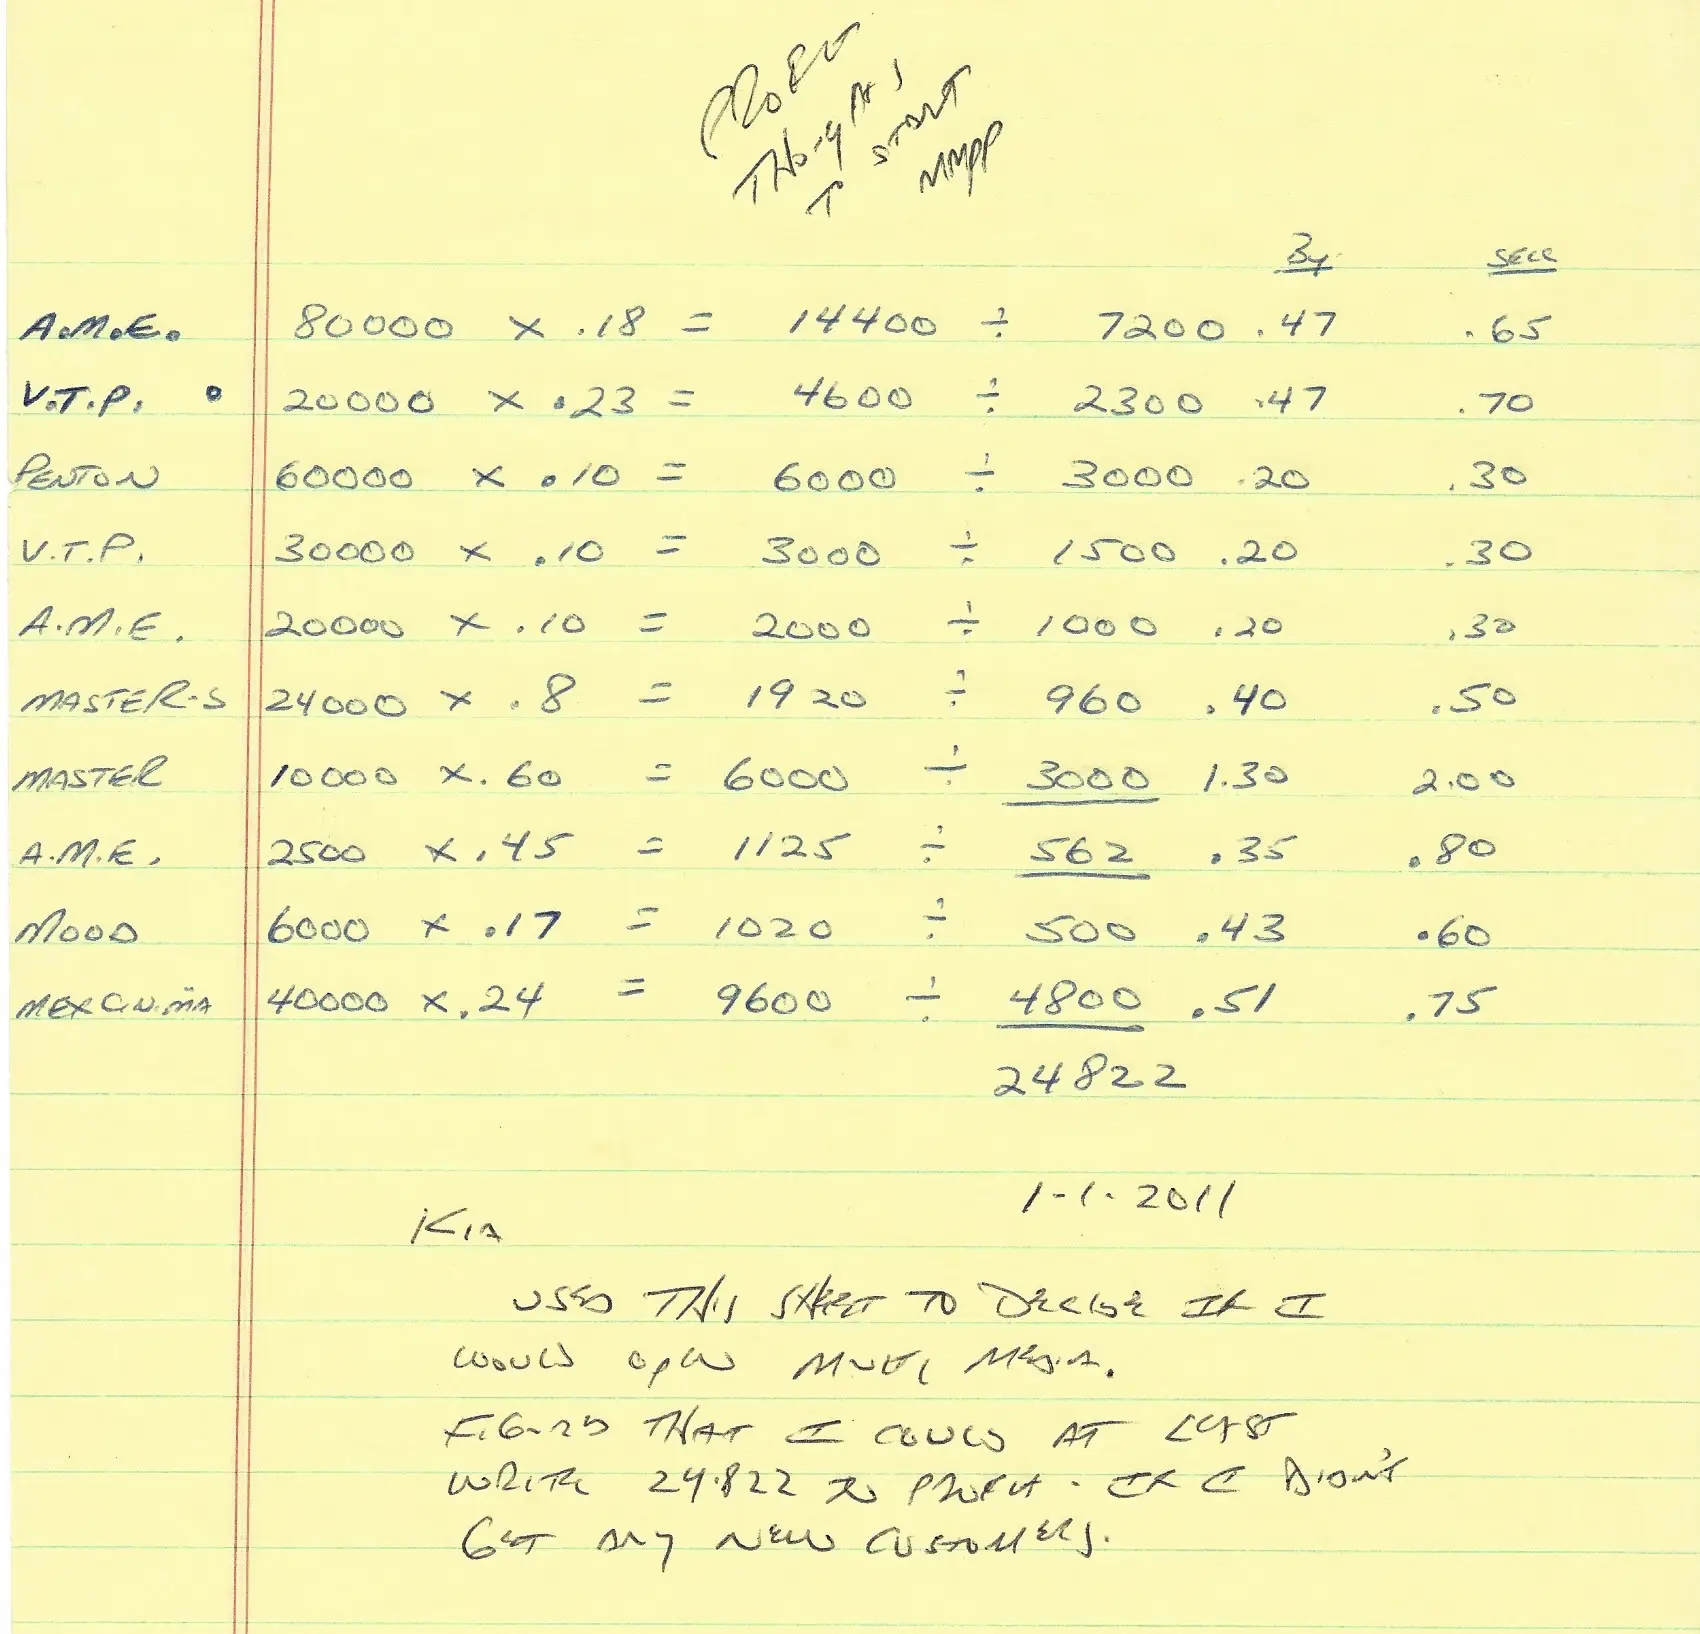 PROFIT
THO-GHTS
TO START
MMPP
By SELL
A.M.E. 80000 x .18 = 14400 ÷ 7200 .47 .65
V.T.P. 20000 x .23 = 4600 ÷ 2300 .47 .70
PENTON 60000 x .10 = 6000 ÷ 3000 .20 .30
V.T.P. 30000 x .10 = 3000 ÷ 1500 .20 .30
A.M.E. 20000 x .10 = 2000 ÷ 1000 .20 .30
MASTER-S 24000 x .8 = 1920 ÷ 960 .40 .50
MASTER 10000 x .60 = 6000 ÷ 3000 1.30 2.00
A.M.E. 2500 x .45 = 1125 ÷ 562 .35 .80
MOOD 6000 x .17 = 1020 ÷ 500 .43 .60
MEX 40000 x .24 = 9600 ÷ 4800 .51 .75
24822
1-1-2011
KIA
USED THIS SHEET TO DECIDE IF I
WOULD OPEN MULTI MEDIA.
FIGURED THAT I COULD AT LEAST
WRITE 24.822 IN PROFIT. IF I DIDN'T
GET ANY NEW CUSTOMERS.